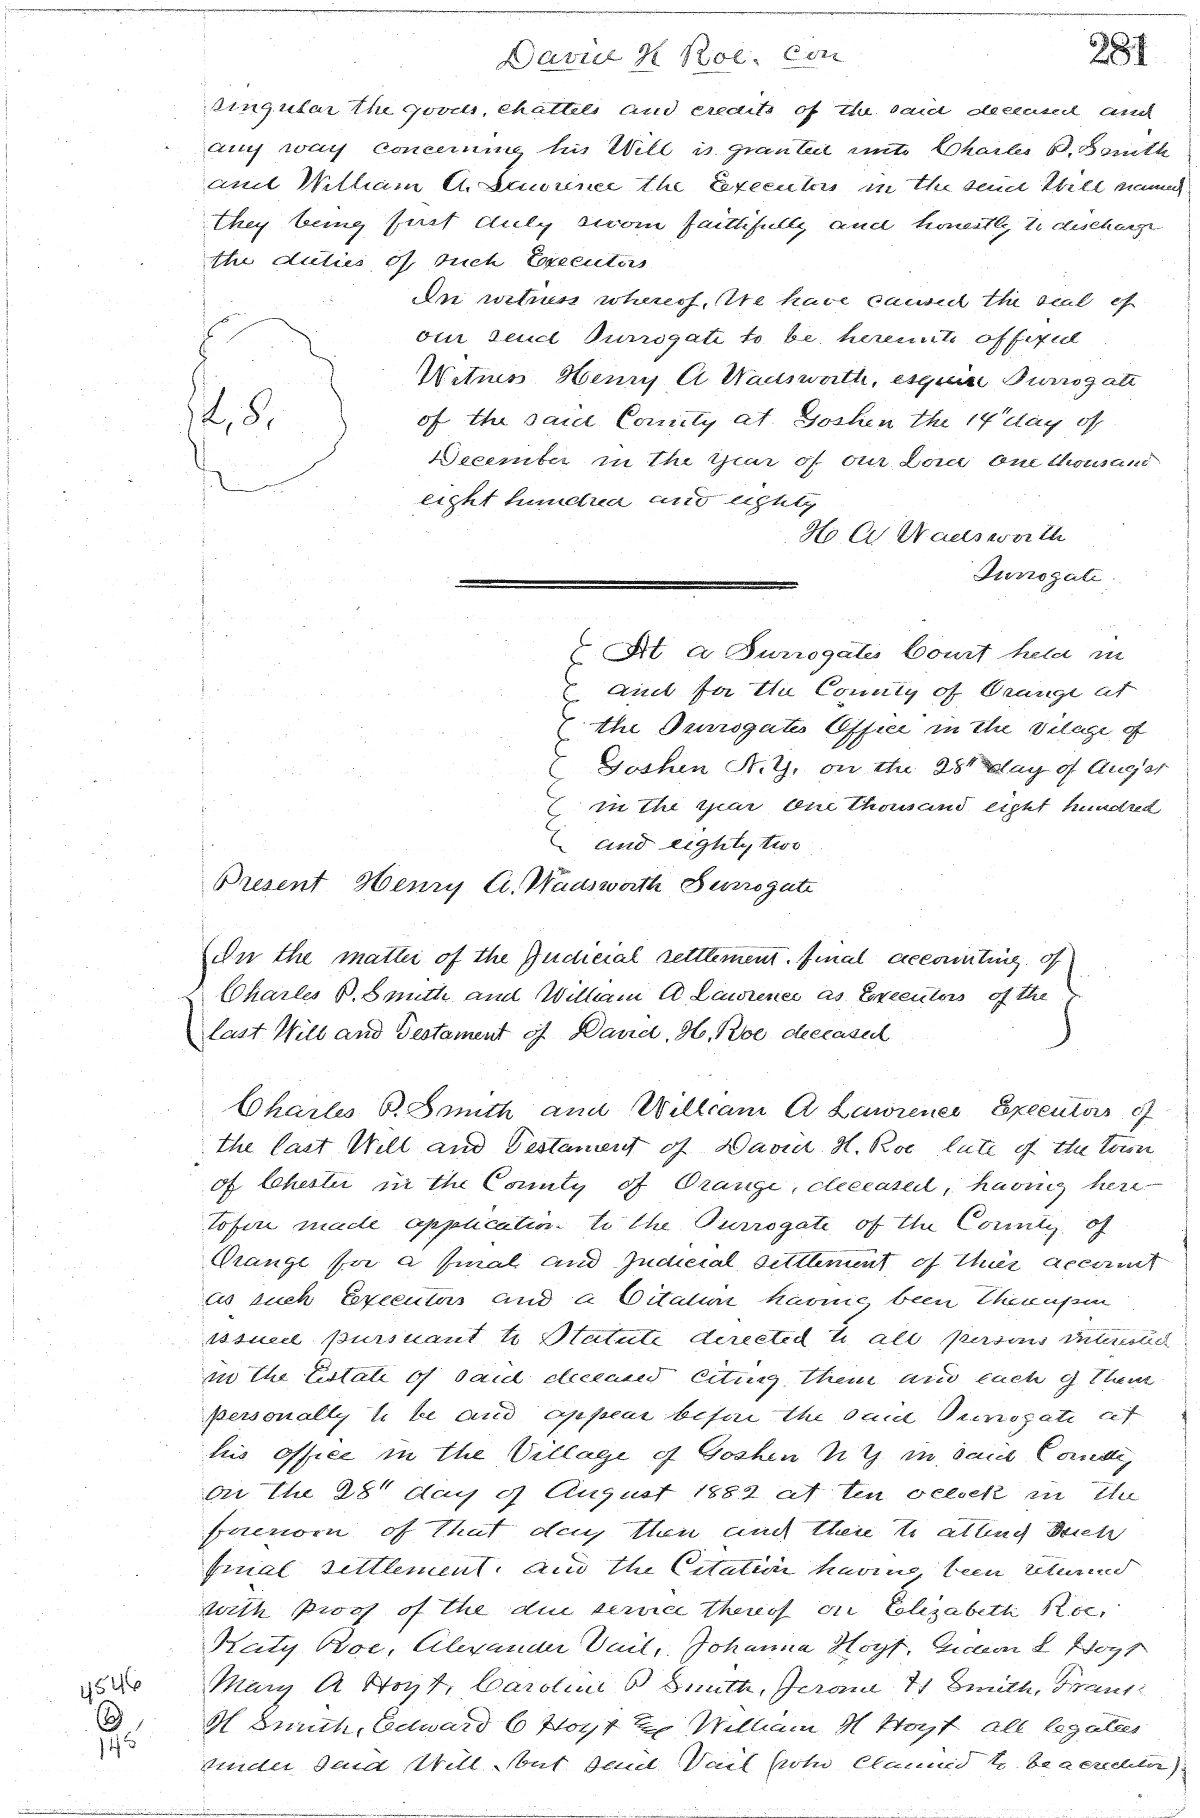 281
David H Roe. Con
singular the goods, chattels and credits of the said deceased and
any way concerning his Will is granted unto Charles P. Smith
and William A. Lawrence the Executors in the said Will named
they being first duly sworn faithfully and honestly to discharge
the duties of such Executors
In witness whereof, We have caused the seal of
our said Surrogate to be hereunto affixed
Witness Henry A Wadsworth, esquire Surrogate
L, S,
of the said County at Goshen the 14" day of
December in the year of our Lord one thousand
eight hundred and eighty
H A Wadsworth
Surrogate
At a Surrogates Court held in
and for the County of Orange at
the Surrogates Office in the Vilage of
Goshen N.Y. on the 28" day of Augst
in the year one thousand eight hundred
and eighty two
Present Henry A. Wadsworth Surrogate
In the matter of the Judicial settlement. final accounting of
Charles P. Smith and William A Lawrence as Executors of the
last Will and Testament of David. H. Roe deceased
Charles P. Smith and William A Lawrence Executors of
the last Will and Testament of David H. Roe late of the town
of Chester in the County of Orange, deceased, having here-
tofore made application to the Surrogate of the County of
Orange for a final and Judicial settlement of thier account
as such Executors and a Citation having been thereupon
issued pursuant to Statute directed to all persons interested
in the Estate of said deceased citing them and each of them
personally to be and appear before the said Surrogate at
his office in the Village of Goshen N Y in said County
on the 28" day of August 1882 at ten oclock in the
forenoon of that day then and there to attend such
final settlement. and the Citation having been returned
with proof of the due service thereof on Elizabeth Roe,
Katy Roe, Alexander Vail, Johanna Hoyt, Gideon L Hoyt
Mary A Hoyt, Caroline P Smith, Jerome H Smith, Frank
H Smith, Edward C Hoyt William H Hoyt all legatees
under said Will. but said Vail (who claimed to be a creditor)
4546
145